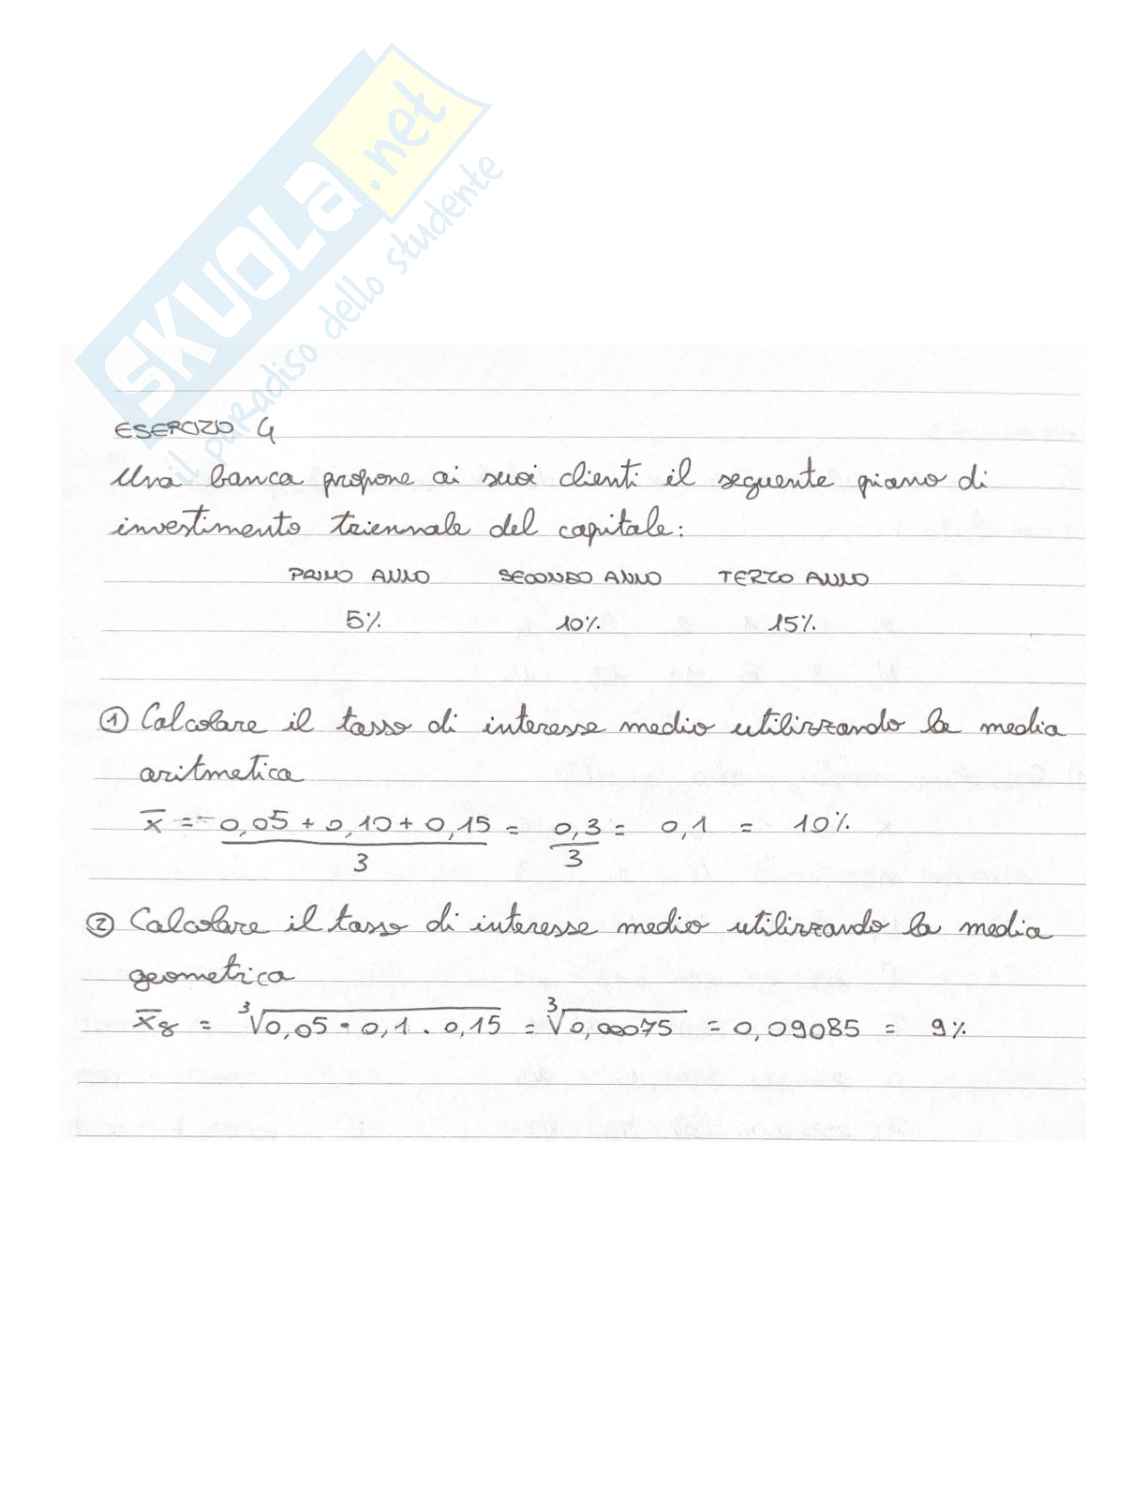 SKUOLA.net
il paradiso dello studente
ESERCIZIO 4
Una banca propone ai suoi clienti il seguente piano di
investimento triennale del capitale:
PRIMO ANNO SECONDO ANNO TERZO ANNO
5% 10% 15%
① Calcolare il tasso di interesse medio utilizzando la media
aritmetica
x̄ = 0,05 + 0,10 + 0,15 / 3 = 0,3 / 3 = 0,1 = 10%
② Calcolare il tasso di interesse medio utilizzando la media
geometrica
x̄g = ³√0,05 · 0,1 · 0,15 = ³√0,00075 = 0,09085 = 9%